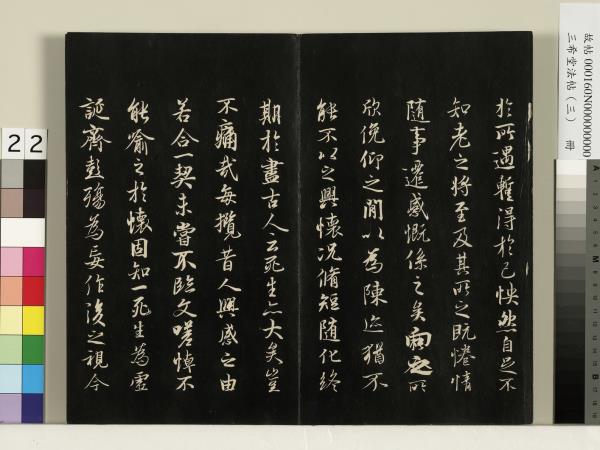 故帖 000160N000000000
三希堂法帖（三） 冊
於所遇暫得於己怏然自足不
知老之將至及其所之既惓情
隨事遷感慨係之矣向之所
欣俛仰之閒以為陳迹猶不
能不以之興懷況脩短隨化終
期於盡古人云死生亦大矣豈
不痛哉每攬昔人興感之由
若合一契未嘗不臨文嗟悼不
能喻之於懷固知一死生為虛
誕齊彭殤為妄作後之視今
22
A
M
B